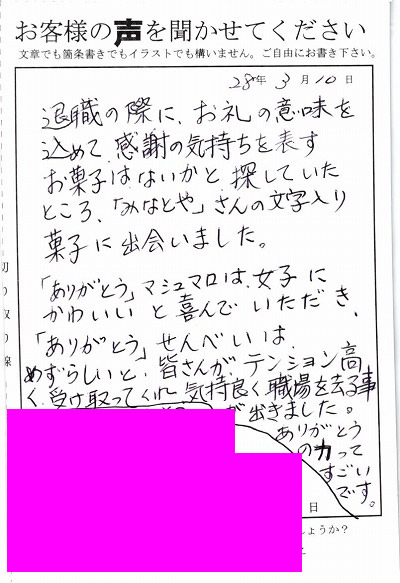 お客様の声を聞かせてください
文章でも箇条書きでもイラストでも構いません。ご自由にお書き下さい。
28年 3月 10日
退職の際に、お礼の意味を
込めて、感謝の気持ちを表す
お菓子はないかと探していた
ところ、「みなとや」さんの文字入り
菓子に出会いました。
「ありがとう」マシュマロは、女子に
かわいいと喜んでいただき、
「ありがとう」せんべいは、
めずらしいと、皆さんが、テンション高
く、受け取ってくれ、気持良く、職場を去る事
が出きました。
ありがとう
の力って
すごい
です。
日
しょうか?
切り取り線